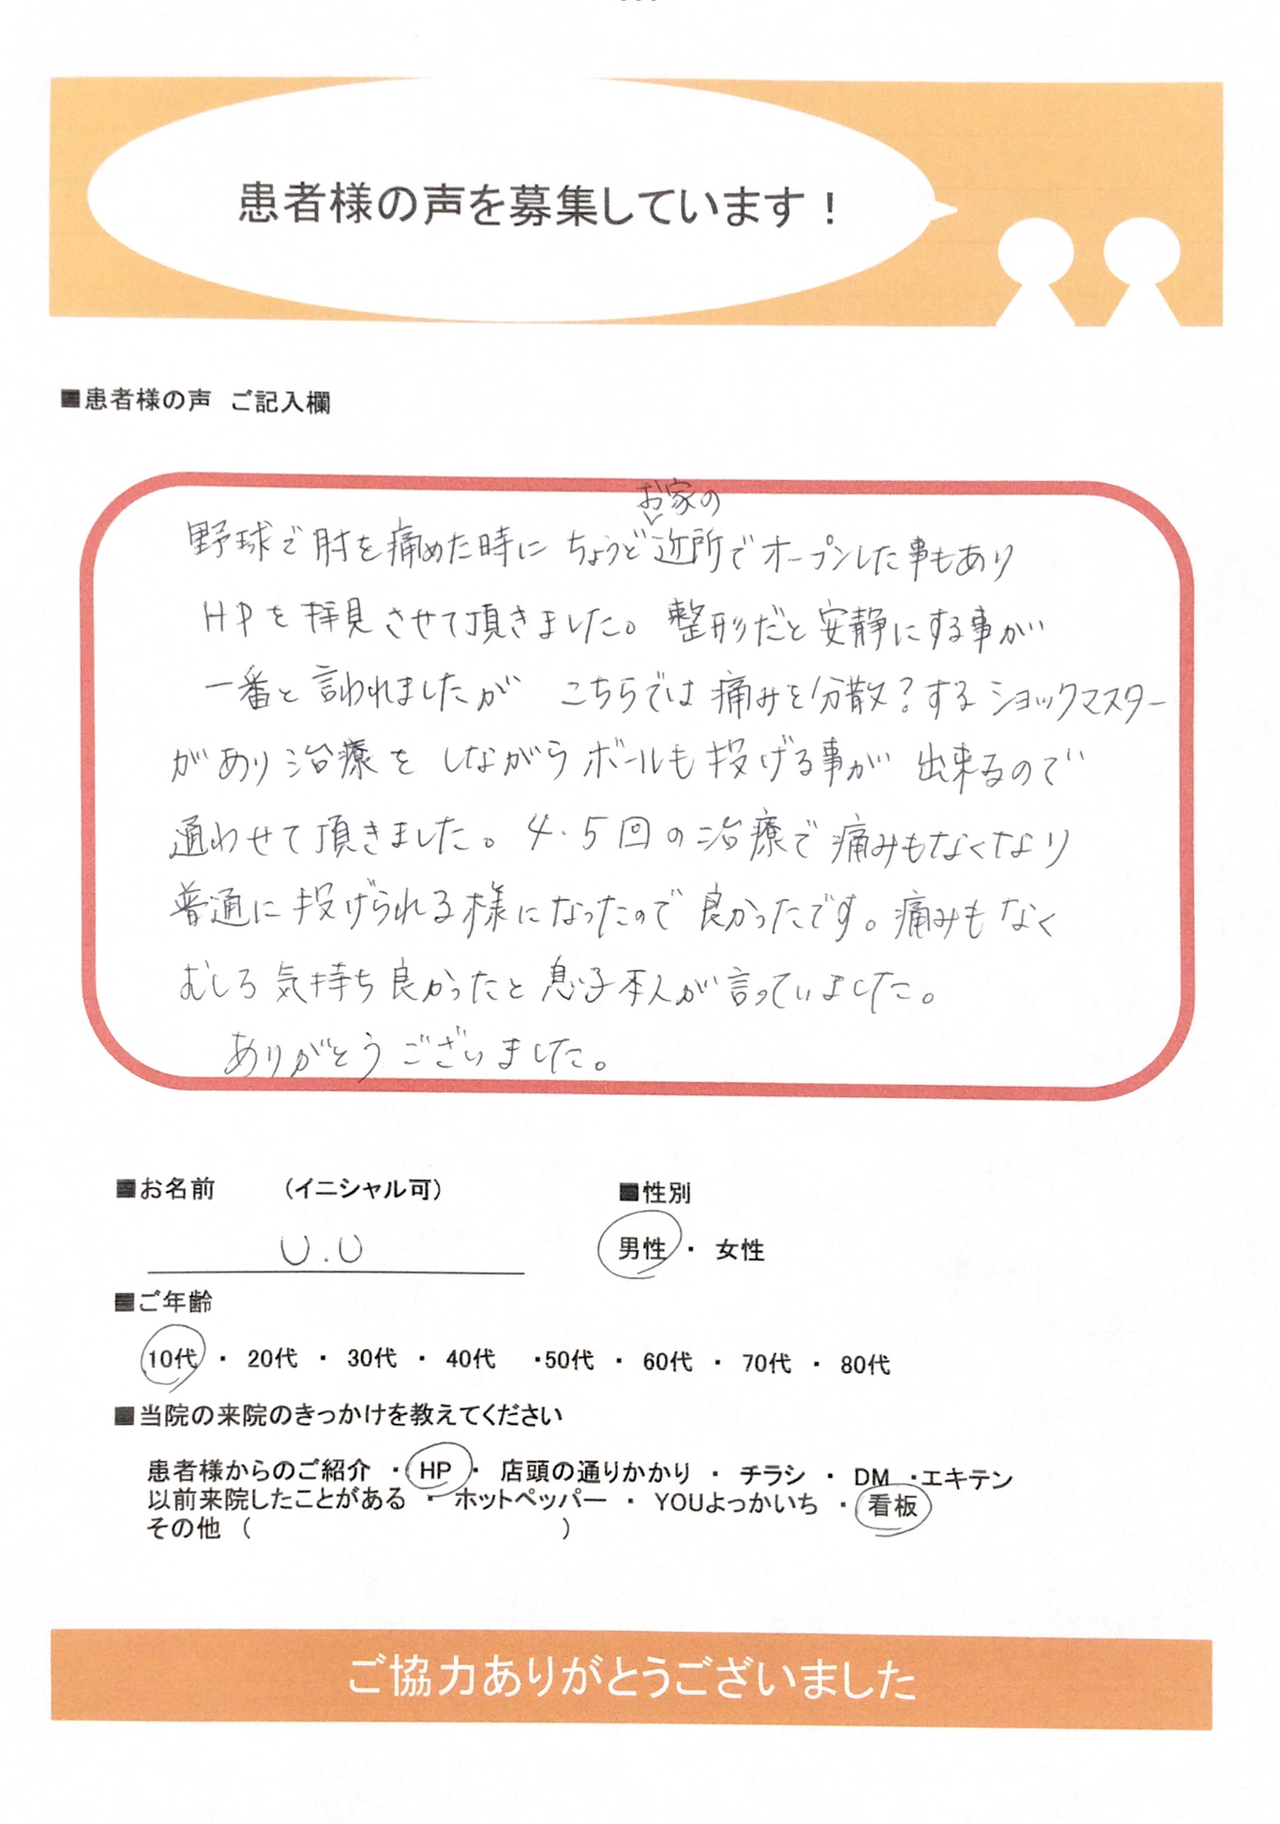 患者様の声を募集しています！
■患者様の声 ご記入欄
お家の
野球で肘を痛めた時に ちょうど近所でオープンした事もあり
HPを拝見させて頂きました。整形だと安静にする事が
一番と言われましたが こちらでは痛みを分散?するショックマスター
があり治療を しながらボールも投げる事が 出来るので
通わせて頂きました。4.5回の治療で痛みもなくなり
普通に投げられる様になったので良かったです。痛みもなく
むしろ気持ち良かったと息子本人が言っていました。
ありがとうございました。
■お名前 （イニシャル可） ■性別
U.U 男性 ・ 女性
■ご年齢
10代 ・ 20代 ・ 30代 ・ 40代 ・50代 ・ 60代 ・ 70代 ・ 80代
■当院の来院のきっかけを教えてください
患者様からのご紹介 ・ HP ・ 店頭の通りかかり ・ チラシ ・ DM ・エキテン
以前来院したことがある ・ ホットペッパー ・ YOUよっかいち ・ 看板
その他 （ ）
ご協力ありがとうございました